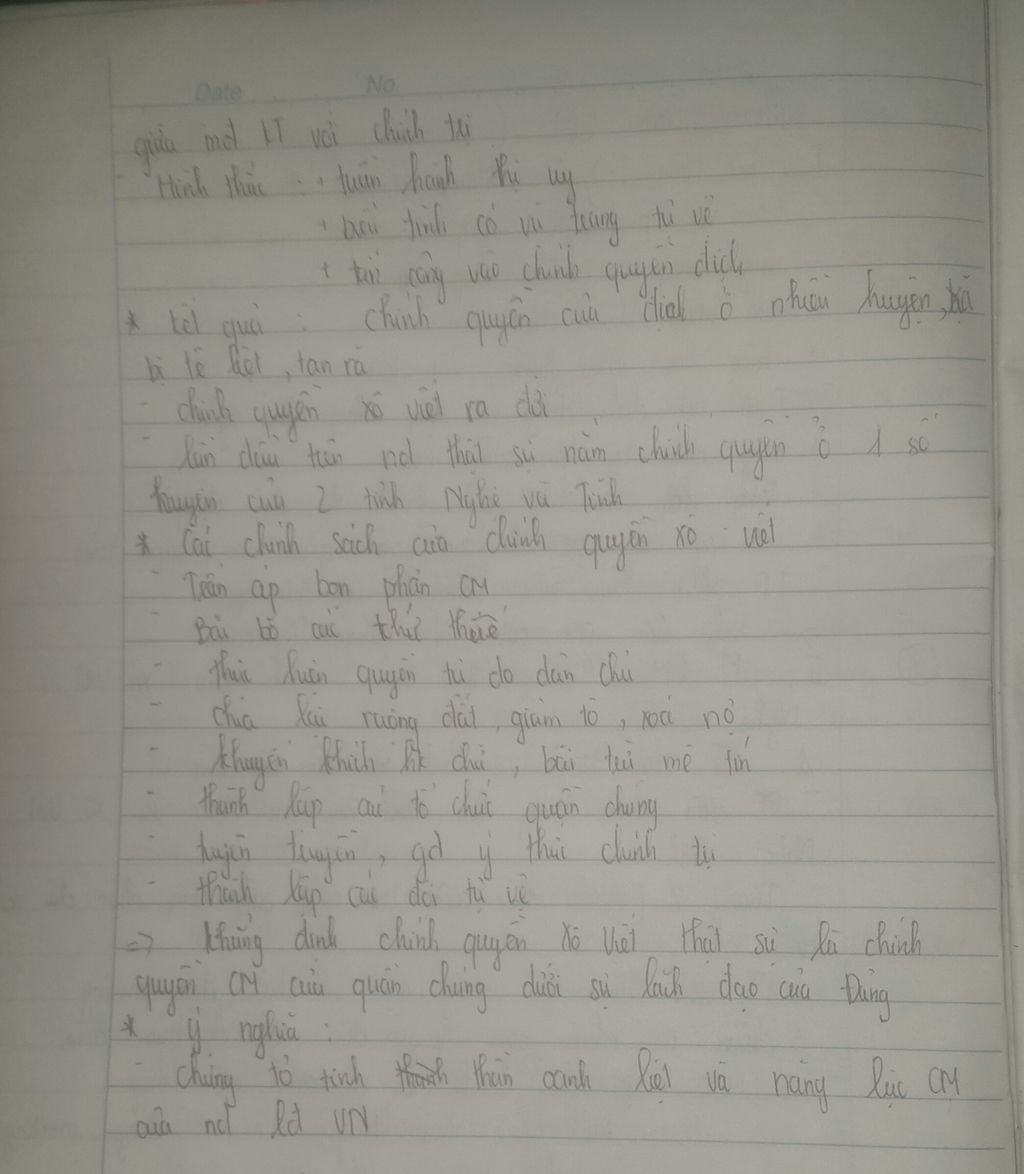 Date No.
giữa mđ KT với chính trị
- Hình thức : + tuần hành thị uy
+ biểu tình có vũ trang tự vệ
+ tấn công vào chính quyền địch
* kết quả : chính quyền của địch ở nhiều huyện, xã
bị tê liệt, tan rã
- chính quyền xô viết ra đời
- lần đầu tiên nd thật sự nắm chính quyền ở 1 số
huyện của 2 tỉnh Nghệ và Tĩnh
* Các chính sách của chính quyền xô - viết
- Trấn áp bọn phản CM
- Bãi bỏ các thứ thuế
- thực hiện quyền tự do dân chủ
- chia lại ruộng đất, giảm tô, xoá nợ
- khuyến khích hk chữ, bài trừ mê tín
- thành lập các tổ chức quần chúng
- tuyên truyền, gd ý thức chính trị
- thành lập các đội tự vệ
=> khẳng định chính quyền Xô Viết thật sự là chính
quyền CM của quần chúng dưới sự lãnh đạo của Đảng
* ý nghĩa :
- Chứng tỏ tinh thần oanh liệt và năng lực CM
của nd lđ VN